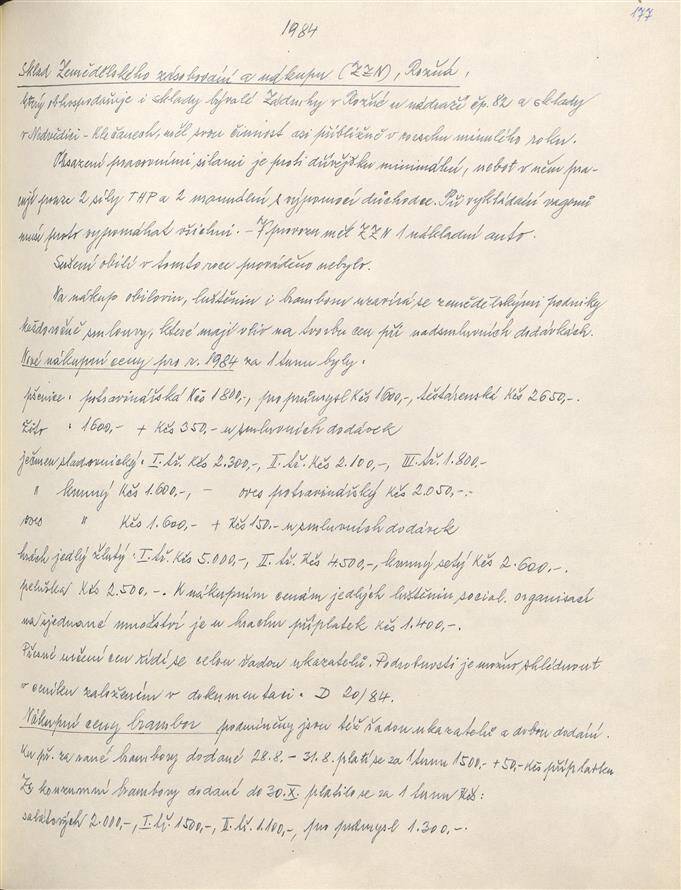 177
1984
Sklad Zemědělského zásobování a nákupu (ZZN), Rožná,
který obhospodařuje i sklady bývalé Zádruhy v Rožné u nádraží čp. 82 a sklady
v Nedvědici - Klečanech, měl svou činnost asi přibližně v rozsahu minulého roku.
Obsazení pracovními silami je proti dřívějšku minimální, neboť v něm pra-
cují pouze 2 síly THP a 2 manuelní s výpomocí důchodce. Při vykládání vagonů
musí proto vypomáhat všichni. - V provozu měl ZZN 1 nákladní auto.
Sušení obilí v tomto roce prováděno nebylo.
Na nákup obilovin, luštěnin i brambor uzavírá se zemědělskými podniky
každoročně smlouvy, které mají vliv na tvorbu cen při nadsmluvních dodávkách.
Nové nákupní ceny pro r. 1984 za 1 tunu byly:
pšenice: potravinářská Kčs 1800,-, pro průmysl Kčs 1600,-, těstárenská Kčs 2650,-.
Žito : 1600,- + Kčs 350,- u smluvních dodávek
ječmen sladovnický: I. tř. Kčs 2.300,-, II. tř. Kčs 2.100,-, III. tř. 1.800,-
" krmný Kčs 1.600,-, - oves potravinářský Kčs 2.050,-.
oves " Kčs 1.600,- + Kčs 150,- u smluvních dodávek
hrách jedlý žlutý: I. tř. Kčs 5.000,-, II. tř. Kčs 4500,-, krmný setý Kčs 2.600,-.
peluška Kčs 2.500,-. K nákupním cenám jedlých luštěnin social. organisací
na sjednané množství je u hrachu příplatek Kčs 1.400,-.
Přesné určení cen řídí se celou řadou ukazatelů. Podrobnosti je možno shlédnout
v ceníku založeném v dokumentaci. D 20/84.
Nákupní ceny brambor podmíněny jsou též řadou ukazatelů a dobou dodání.
Ku př. za rané brambory dodané 28.8. - 31.8. platí se za 1 tunu 1500,- + 50,- Kčs příplatku
Za konzumní brambory dodané do 30.X. platilo se za 1 tunu Kčs:
salátových 2.000,-, I. tř. 1500,-, II. tř. 1.100,-, pro průmysl 1.300,-.